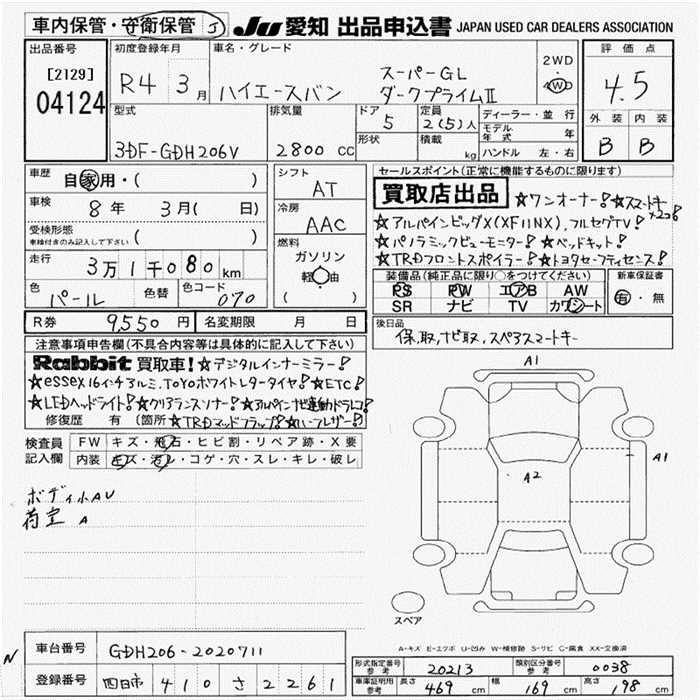 車内保管・守衛保管 J
JU 愛知 出品申込書 JAPAN USED CAR DEALERS ASSOCIATION
出品番号
[2129]
04124
初度登録年月
R4 3月
車名・グレード
ハイエースバン
スーパーGL
ダークプライムⅡ
2WD
4WD
評価点
4.5
外装 内装
B B
型式
3DF-GDH206V
排気量
2800 CC
ドア
5
形状
定員
2(5)人
積載
kg
ディーラー・並行
モデル年式 年
ハンドル 左・右
車歴
自家用・( )
車検
8年 3月( 日)
受検形態
車検付きのみ記入して下さい ( )
走行
3万1千080km
色
パール
色替
色コード
070
シフト
AT
冷房
AAC
燃料
ガソリン
軽油
( )
R券 9,550円
名変期限 月 日
セールスポイント(正常に機能するものに限ります)
買取店出品 ☆ワンオーナー!☆スマートキー×2コ!
☆アルパインビッグX(XF11NX),フルセグTV!
☆パノラミックビューモニター!☆ベッドキット!
☆TRDフロントスポイラー!☆トヨタセーフティセンス!
装備品(純正品に限り○をつけてください)
PS PW エアB AW
SR ナビ TV カワシート
新車保証書
有・無
後日品
保,取,ナビ取,スペアスマートキー
注意事項申告欄(不具合内容等は具体的に記入して下さい)
Rabbit 買取車!☆デジタルインナーミラー!
☆essex16インチアルミ,TOYOホワイトレタータイヤ!☆ETC!
☆LEDヘッドライト!☆クリアランスソナー!☆アルパインナビ連動ドラレコ!
修復歴 有 (箇所 ☆TRDマッドフラップ!☆ハーフレザー!)
検査員記入欄
FW キズ・飛石・ヒビ割・リペア跡・X要
内装 キズ・汚レ・コゲ・穴・スレ・キレ・破レ
ボディ小AU
荷室 A
A1
A1
A2
スペア
A-キズ E-エクボ U-凹み W-補修跡 S-サビ C-腐食 XX-交換済
N
車台番号 GDH206-2020711
登録番号 四日市 410 さ 2261
形式指定番号 参考 20213
類別区分番号 参考 0038
車庫証明用 参考 長さ 469 cm 幅 169 cm 高さ 198 cm